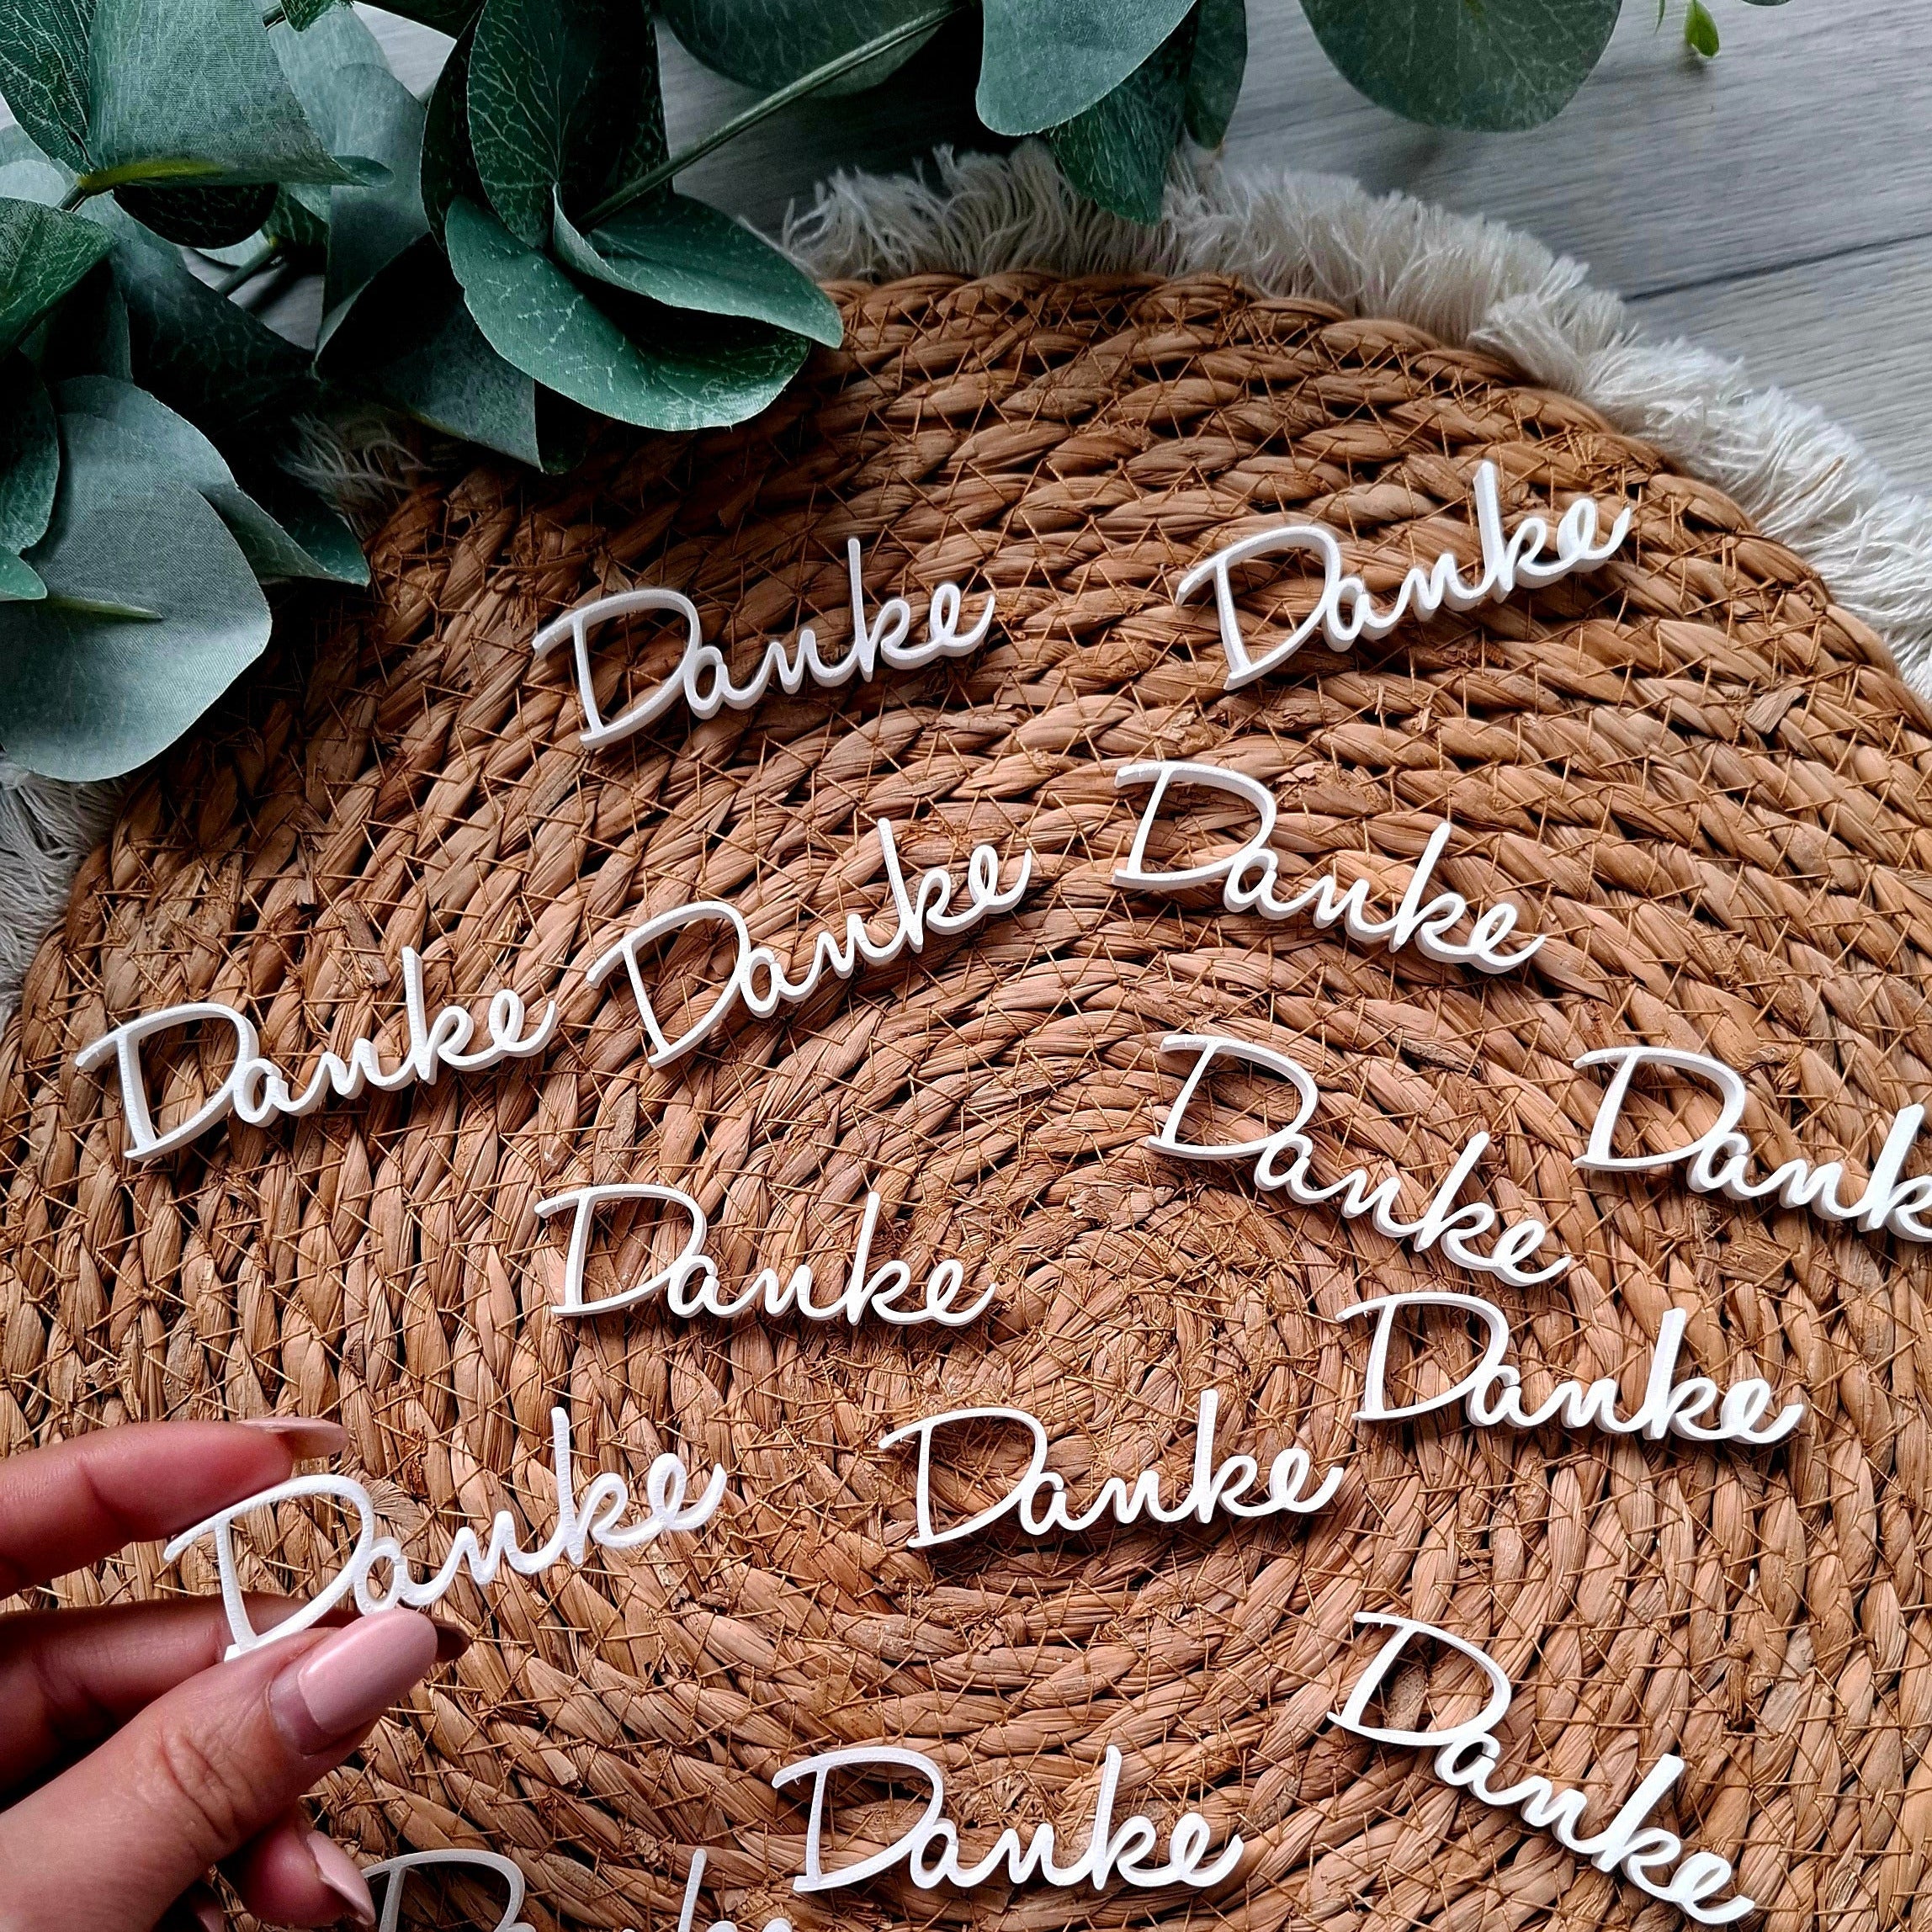 Danke
Danke
Danke
Danke
Danke
Danke
Dank
Danke
Danke
Danke
Danke
Danke
Danke